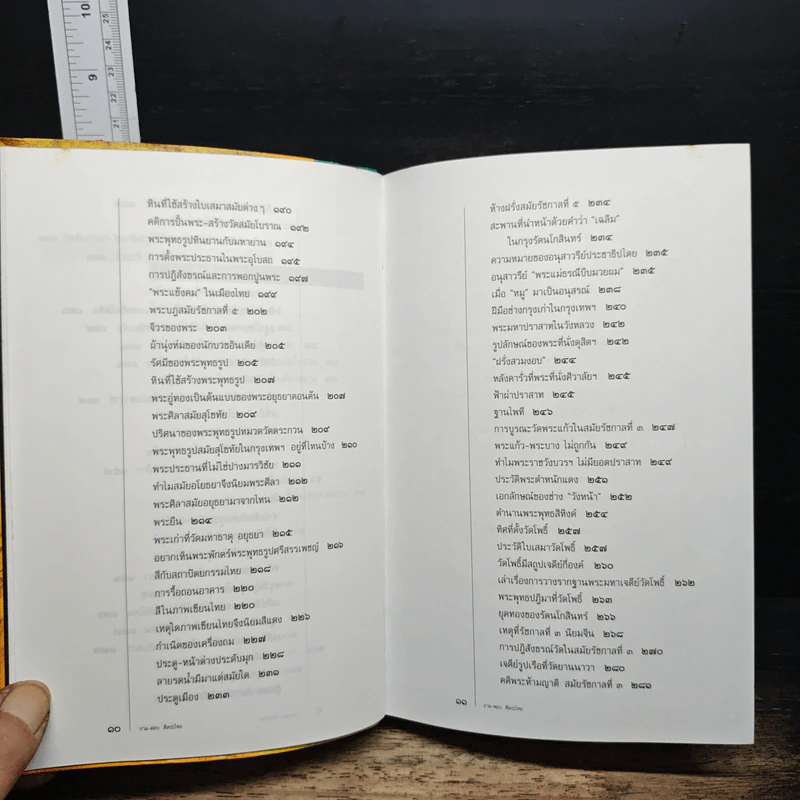 10
9
25
24
23
22
21
หินที่ใช้สร้างใบเสมาสมัยต่าง ๆ ๑๙๐
คติการปั้นพระ-สร้างวัดสมัยโบราณ ๑๙๒
พระพุทธรูปหินยานกับมหายาน ๑๙๔
การตั้งพระประธานในพระอุโบสถ ๑๙๕
การปฏิสังขรณ์และการพอกปูนพระ ๑๙๗
"พระแข้งคม" ในเมืองไทย ๑๙๙
พระบฏสมัยรัชกาลที่ ๕ ๒๐๒
จีวรของพระ ๒๐๓
ผ้านุ่งห่มของนักบวชอินเดีย ๒๐๕
รัศมีของพระพุทธรูป ๒๐๕
หินที่ใช้สร้างพระพุทธรูป ๒๐๗
พระอู่ทองเป็นต้นแบบของพระอยุธยาตอนต้น ๒๐๗
พระศิลาสมัยสุโขทัย ๒๐๙
ปริศนาของพระพุทธรูปหมวดวัดตระกวน ๒๐๙
พระพุทธรูปสมัยสุโขทัยในกรุงเทพฯ อยู่ที่ไหนบ้าง ๒๑๐
พระประธานที่ไม่ใช่ปางมารวิชัย ๒๑๑
ทำไมสมัยอโยธยาจึงนิยมพระศิลา ๒๑๒
พระศิลาสมัยอยุธยามาจากไหน ๒๑๒
พระยืน ๒๑๔
พระเก่าที่วัดมหาธาตุ อยุธยา ๒๑๕
อยากเห็นพระพักตร์พระพุทธรูปศรีสรรเพชญ์ ๒๑๖
สีกับสถาปัตยกรรมไทย ๒๑๘
การรื้อถอนอาคาร ๒๒๐
สีในภาพเขียนไทย ๒๒๐
เหตุใดภาพเขียนไทยจึงนิยมสีแดง ๒๒๖
กำเนิดของเครื่องถม ๒๒๗
ประตู-หน้าต่างประดับมุก ๒๒๘
ลายรดน้ำมีมาแต่สมัยใด ๒๓๑
ประตูเมือง ๒๓๓
๑๐ ถาม-ตอบ ศิลปะไทย
ห้างฝรั่งสมัยรัชกาลที่ ๕ ๒๓๔
สะพานที่นำหน้าด้วยคำว่า "เฉลิม"
ในกรุงรัตนโกสินทร์ ๒๓๔
ความหมายของอนุสาวรีย์ประชาธิปไตย ๒๓๕
อนุสาวรีย์ "พระแม่ธรณีบีบมวยผม" ๒๓๕
เมื่อ "หมู" มาเป็นอนุสรณ์ ๒๓๘
ฝีมือช่างกรุงเก่าในกรุงเทพฯ ๒๔๐
พระมหาปราสาทในวังหลวง ๒๔๒
รูปลักษณ์ของพระที่นั่งดุสิตฯ ๒๔๒
"ฝรั่งสวมงอบ" ๒๔๔
หลังคารั่วที่พระที่นั่งศิวาลัยฯ ๒๔๕
ฟ้าผ่าปราสาท ๒๔๕
ฐานไพที ๒๔๖
การบูรณะวัดพระแก้วในสมัยรัชกาลที่ ๓ ๒๔๗
พระแก้ว-พระบาง ไม่ถูกกัน ๒๔๙
ทำไมพระราชวังบวรฯ ไม่มียอดปราสาท ๒๔๙
ประวัติพระตำหนักแดง ๒๕๑
เอกลักษณ์ของช่าง "วังหน้า" ๒๕๒
ตำนานพระพุทธสิหิงค์ ๒๕๔
ทิศที่ตั้งวัดโพธิ์ ๒๕๗
ประวัติใบเสมาวัดโพธิ์ ๒๕๗
วัดโพธิ์มีสถูปเจดีย์กี่องค์ ๒๖๐
เล่าเรื่องการวางรากฐานพระมหาเจดีย์วัดโพธิ์ ๒๖๒
พระพุทธปฏิมาที่วัดโพธิ์ ๒๖๓
ยุคทองของรัตนโกสินทร์ ๒๖๖
เหตุที่รัชกาลที่ ๓ นิยมจีน ๒๖๘
การปฏิสังขรณ์วัดในสมัยรัชกาลที่ ๓ ๒๗๐
เจดีย์รูปเรือที่วัดยานนาวา ๒๘๐
คติพระห้ามญาติ สมัยรัชกาลที่ ๓ ๒๘๑
๑๑ ถาม-ตอบ ศิลปะไทย